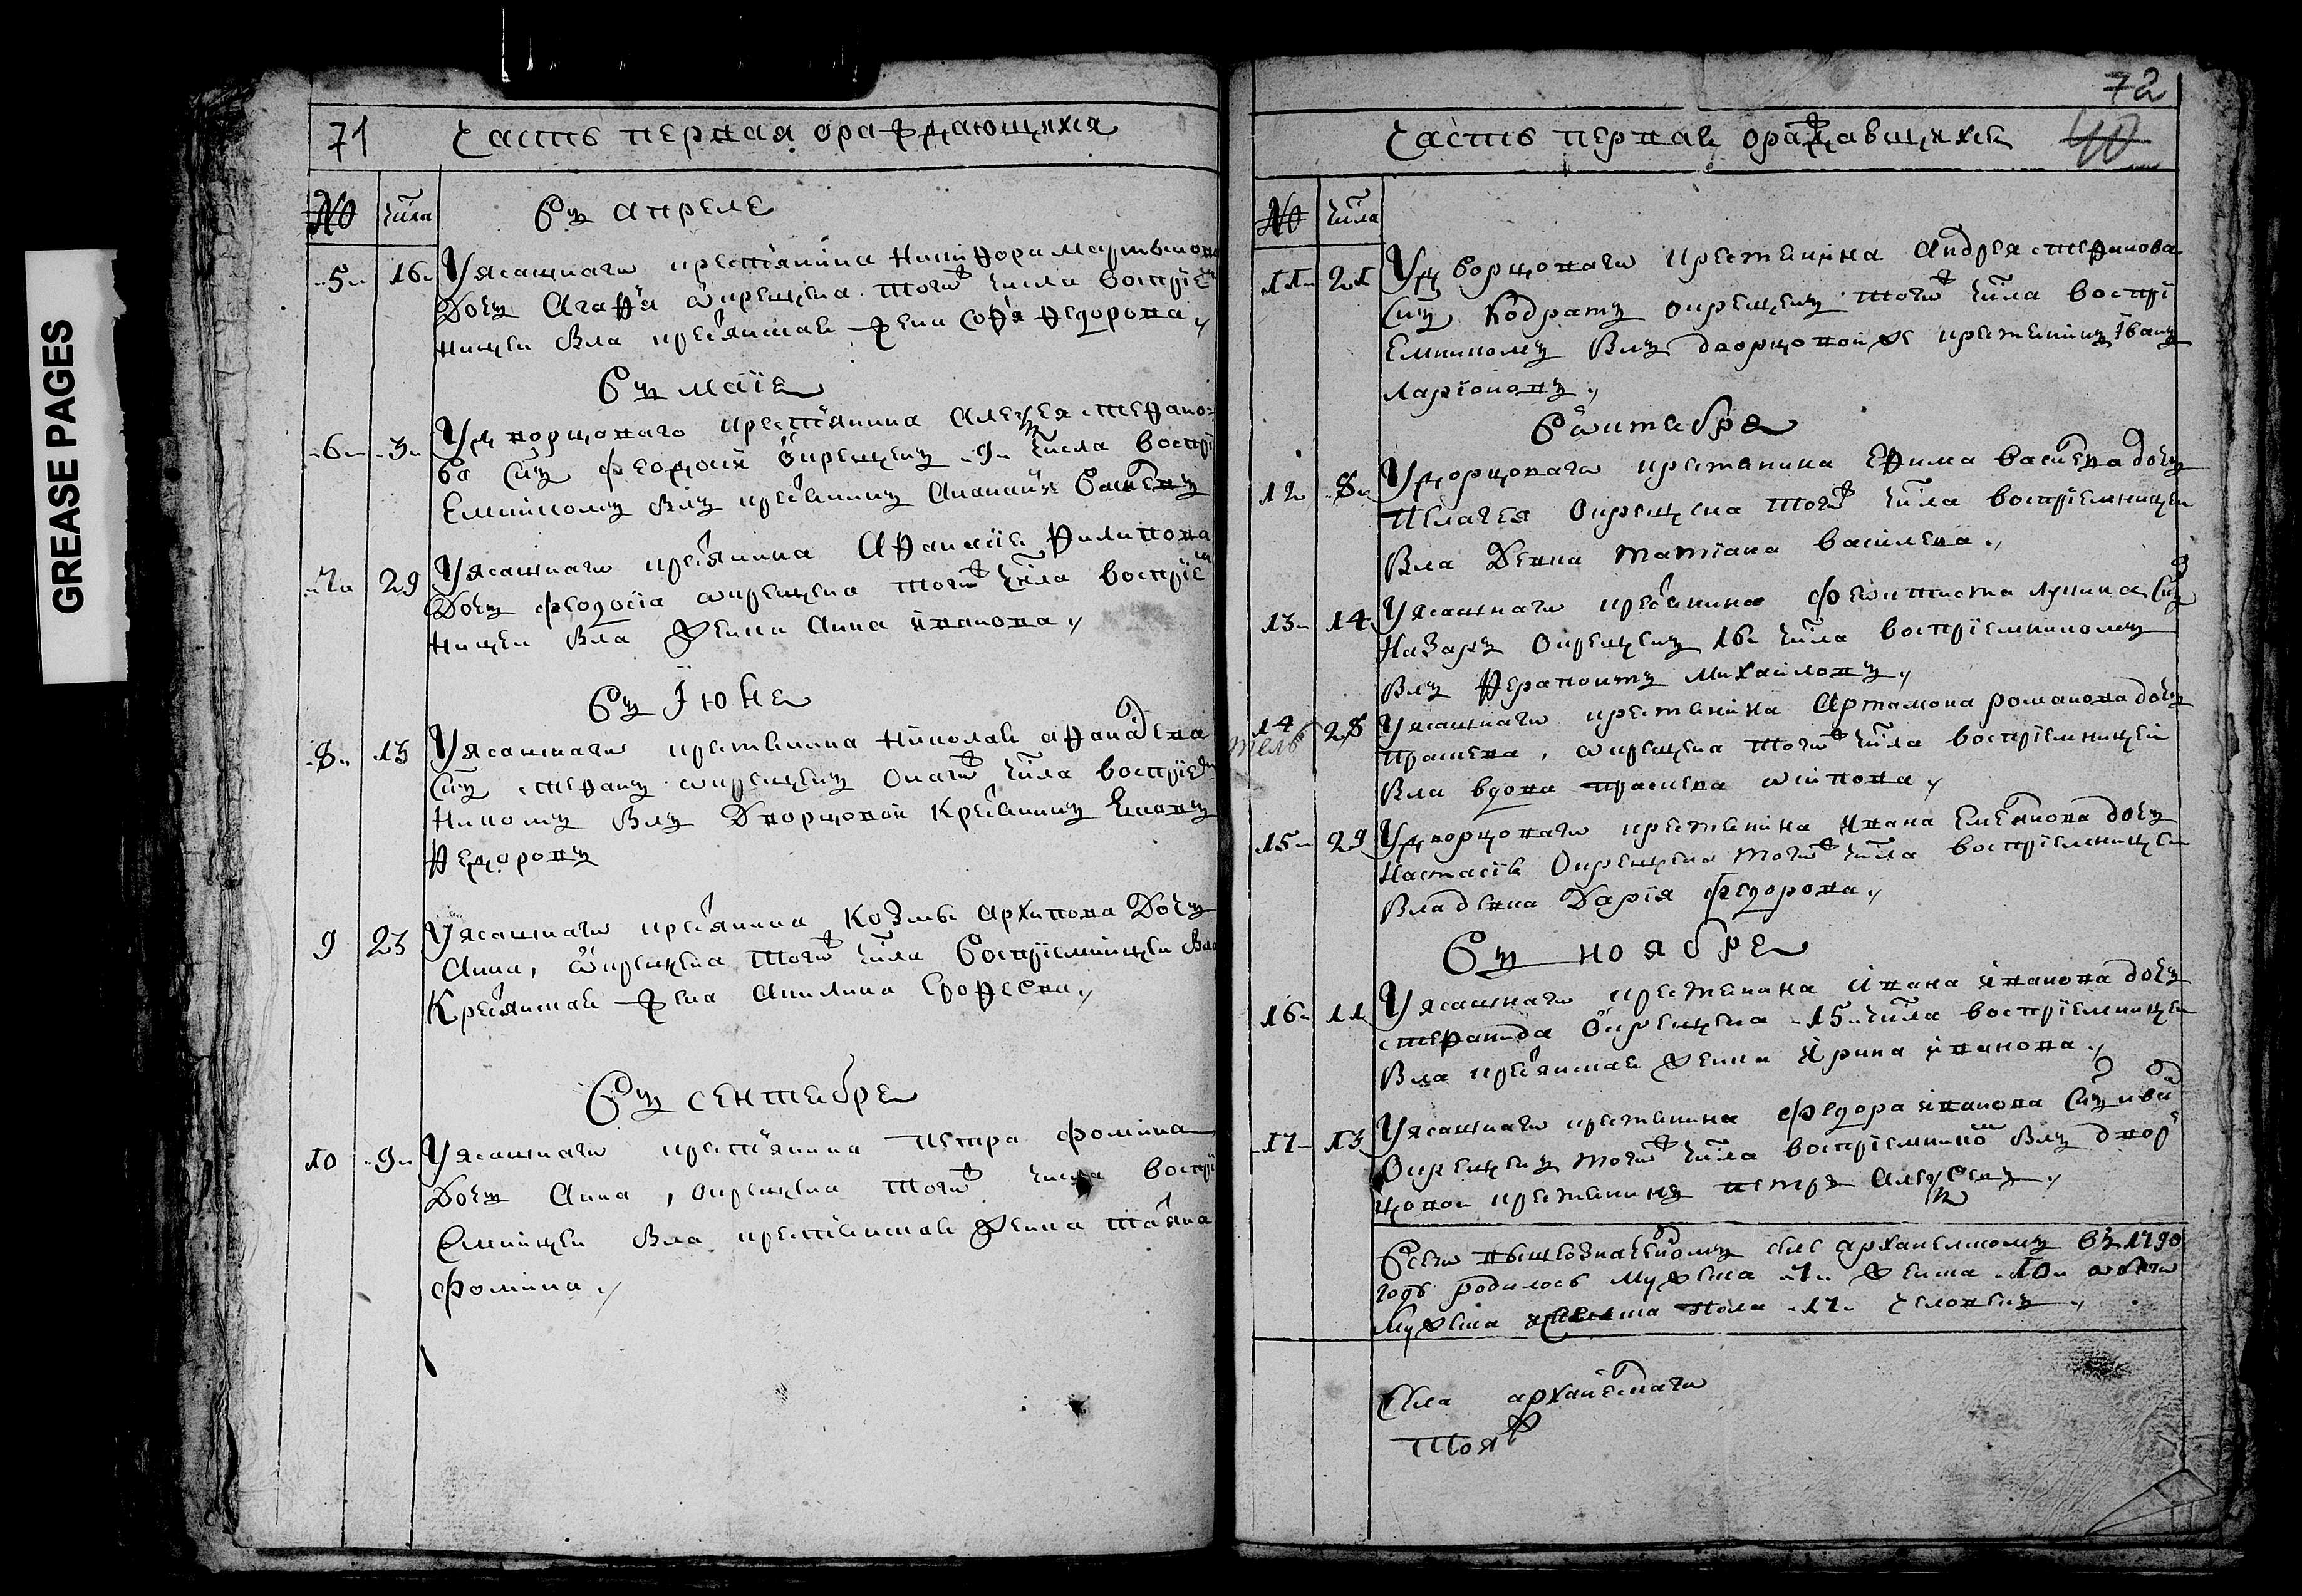 GREASE PAGES
71 часть первая ораждающихся
№ числа
въ апреле
5 16 У ясашнаго крестьянина Никифора Мартынова
дочь Агафья окрещена тогожъ числа воспрiем
ницей была крестьянская жена Софья Федорова
въ маiе
6 3 У дворцоваго крестьянина Алексея Степано
ва сынъ Федосей окрещенъ 9 числа воспрi
емникомъ былъ крестьянинъ
7 29 У ясашнаго крестьянина Афанасiя Филипова
дочь Феодосiа окрещена тогожъ числа воспрiем
ницей была женка Анна Иванова
въ Iюне
8 13 У ясашнаго крестьянина Николая
сынъ Степанъ окрещенъ онагожъ числа воспрiем
никомъ былъ дворцовой крестьянинъ
Федоровъ
9 23 У ясашнаго крестьянина Козмы Архипова дочь
Анна, окрещена тогожъ числа воспрiемницей была
крестьянская жена Акилина Ерофеева
въ сентебре
10 9 У ясашнаго крестьянина Петра Фомина
дочь Анна, окрещена тогожъ числа воспрi
емницей была крестьянская женка Татьяна
Фомина
72
часть первая оражdавщихся 40
№ числа
11 21 У дворцоваго крестьянина Андрея Степанова
сынъ Кодратъ окрещенъ тогожъ числа воспрi
емникомъ былъ дворцовой крестьянинъ Iванъ
Ларiоновъ
В октебре
12 8 У дворцоваго крестьянина Ефима Васильева дочь
Пелагея окрещена тогожъ числа воспрiемницей
была девка Татiана Васильева
13 14 У ясашнаго крестьянина Феоктиста Лукина сынъ
Назаръ окрещенъ 16 числа воспрiемникомъ
былъ Ферапонтъ Михайловъ
14 28 У ясашнаго крестьянина Артамона Романова дочь
Прасковья, окрещена тогожъ числа воспрiемницей
была вдова
15 29 У дворцоваго крестьянина Ивана Емельянова дочь
Настасiя окрещена тогожъ числа воспрiемницей
была девка Дарiя Федорова
въ ноябре
16 11 У ясашнаго крестьянина Ивана Иванова дочь
Степанида окрещена 15 числа воспрiемницей
была крестьянская женка Ирина Иванова
17 13 У ясашнаго крестьянина Федора Иванова сынъ Иванъ
окрещенъ тогожъ числа воспрiемникомъ былъ двор
цовой крестьянинъ Петръ Алексеевъ
Всего въ вышеозначенномъ селе Архангельскомъ въ 1790
годе родилось мужеска 7 женска 10 а обоего
мужеска и женска пола 17 человекъ
Села Архангельскаго